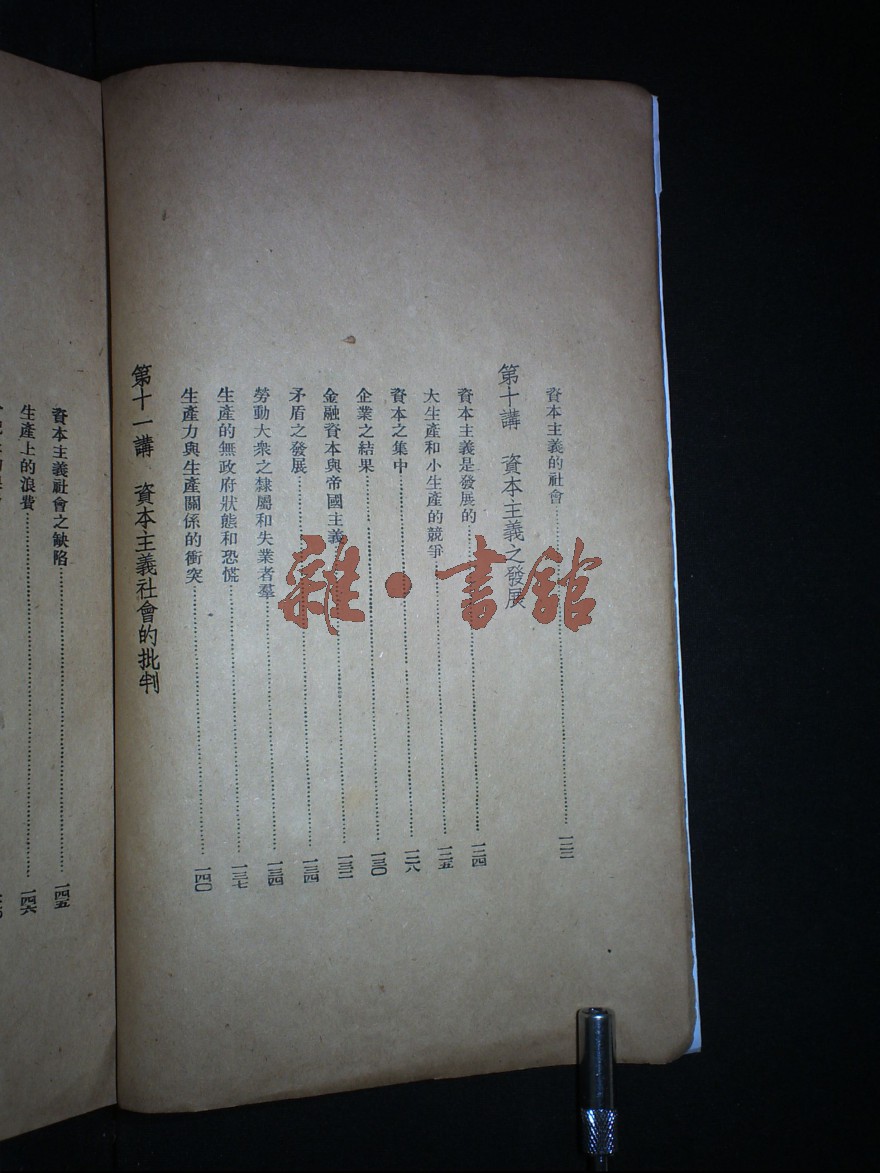 資本主義的社會……一二二
第十講 資本主義之發展
資本主義是發展的……一二四
大生產和小生產的競爭……一二五
資本之集中……一二八
企業之結果……一三〇
金融資本與帝國主義……一三二
矛盾之發展……一三四
勞動大衆之隸屬和失業者羣……一三四
生產的無政府狀態和恐慌……一三七
生產力與生產關係的衝突……一四〇
第十一講 資本主義社會的批判
資本主義社會之缺陷……一四五
生產上的浪費……一四六
雜·書館